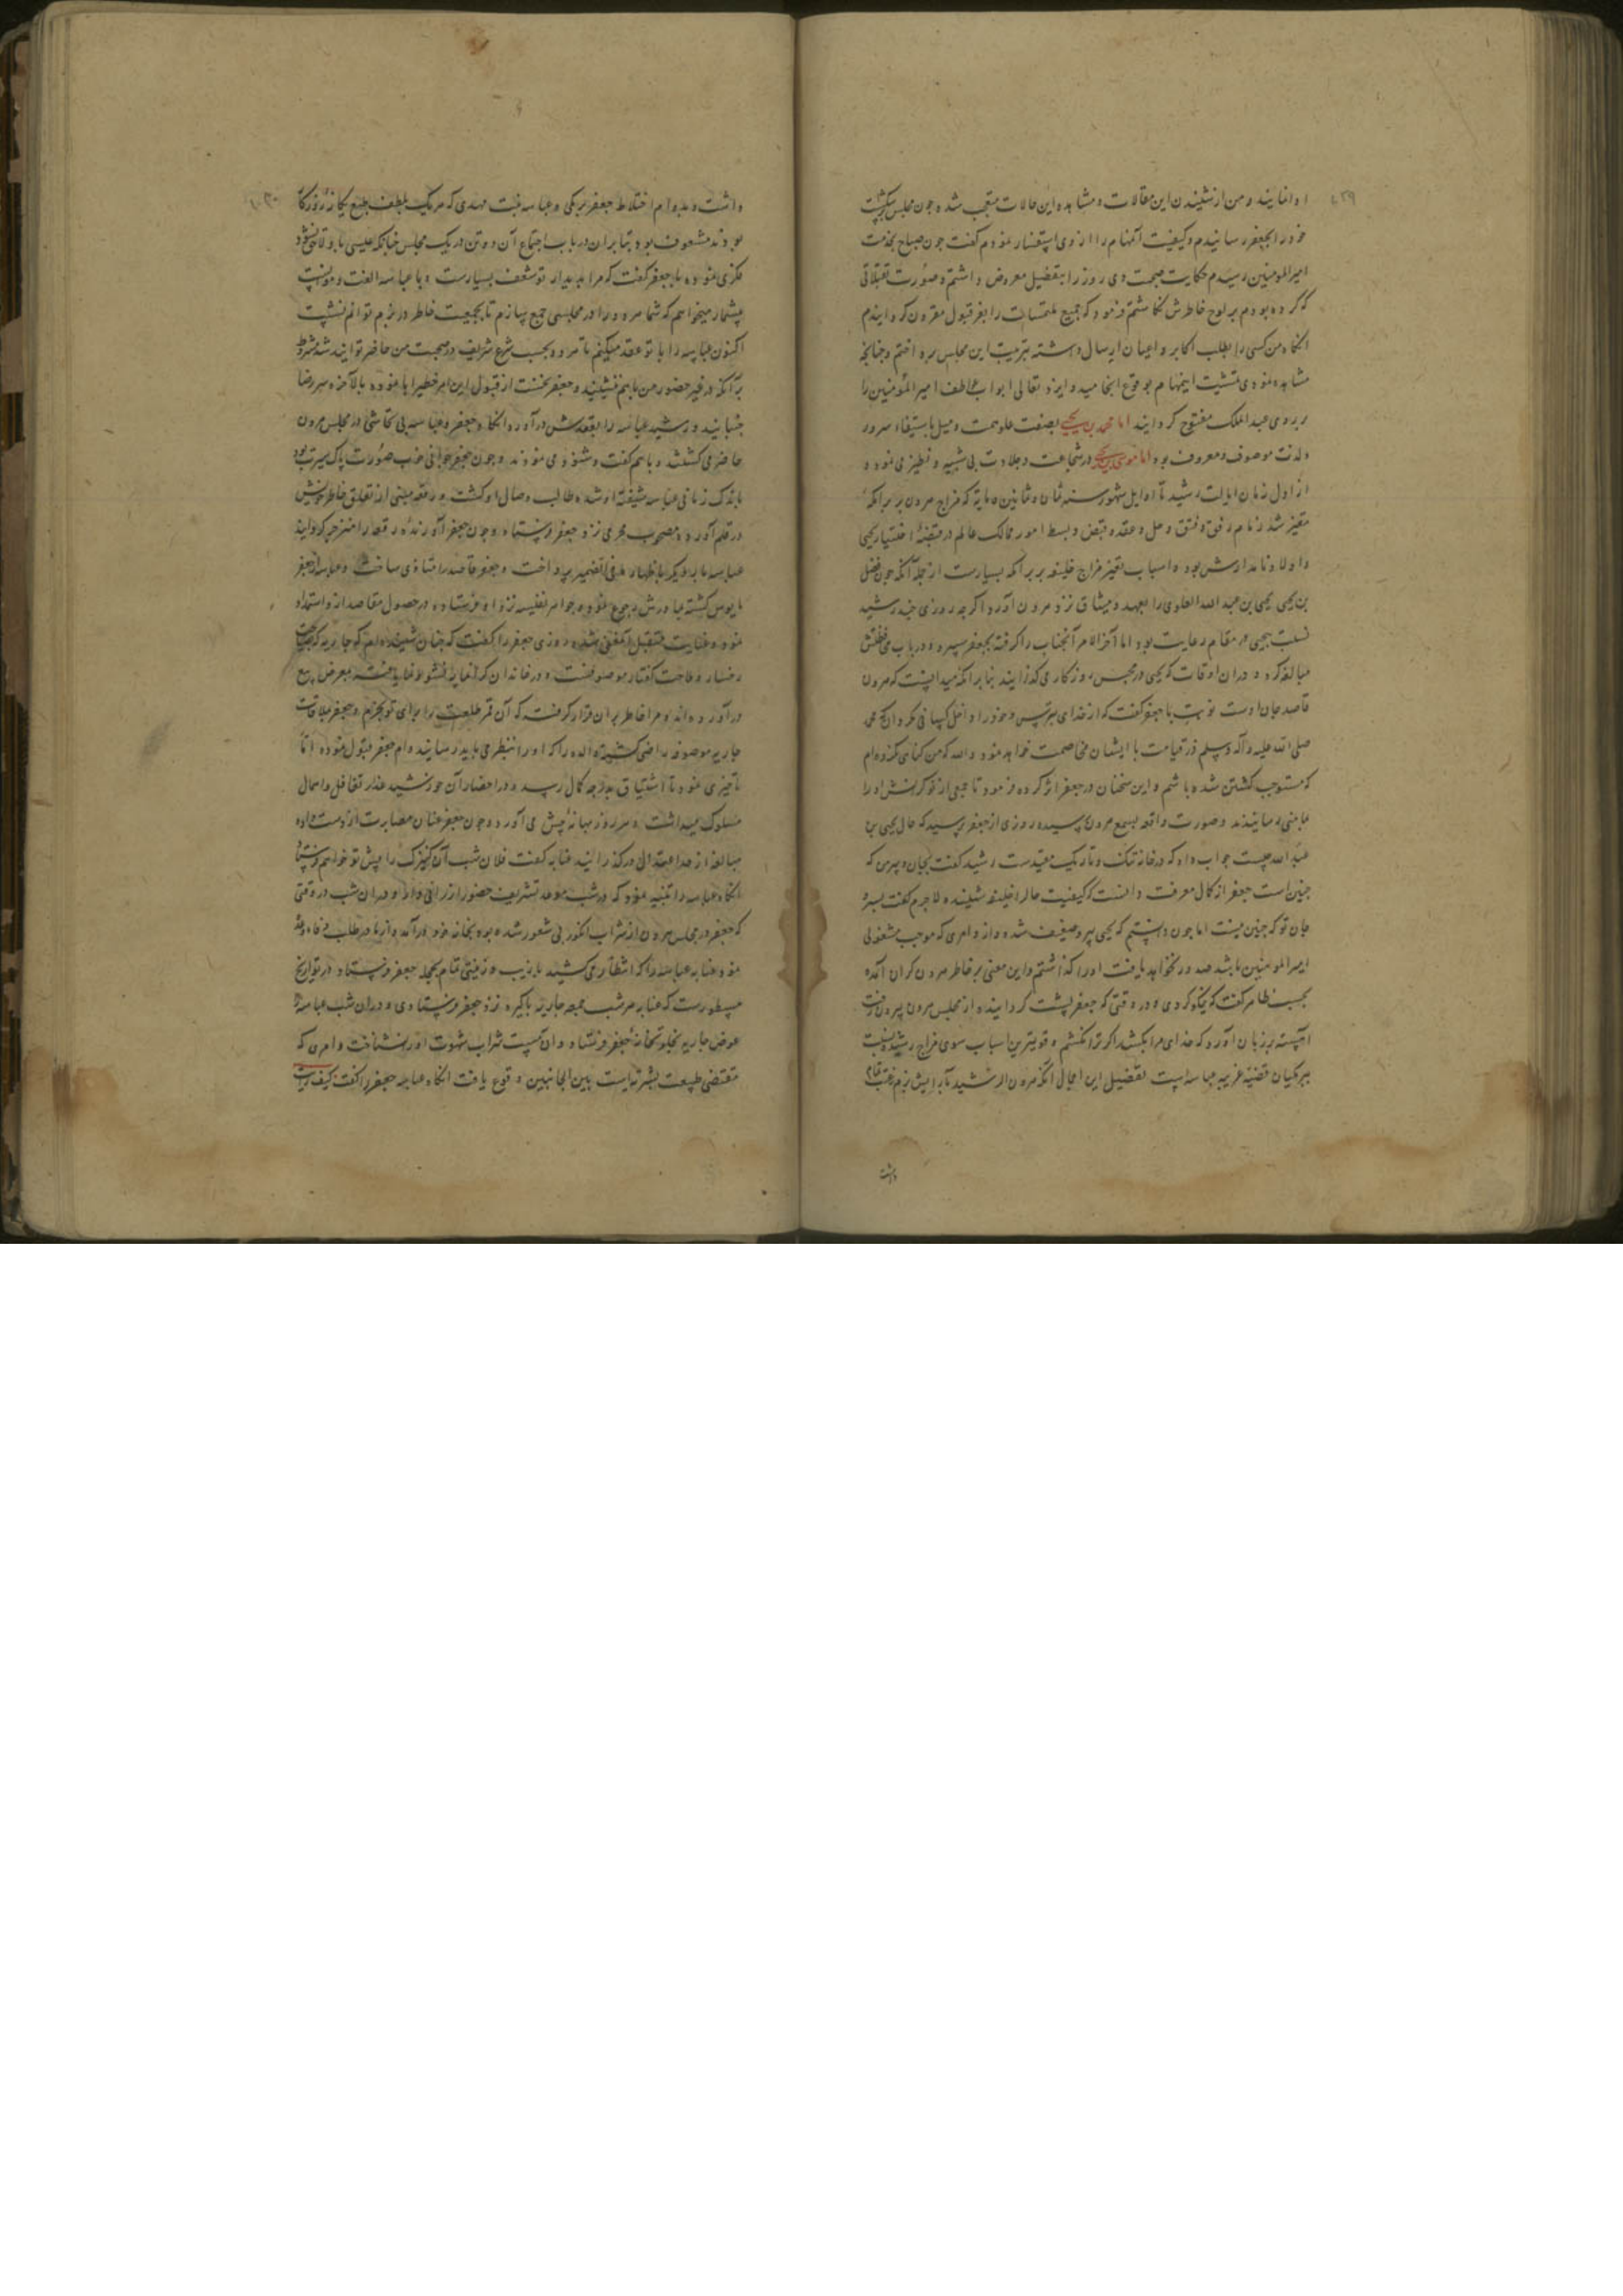 او افاینید و من از شنیدن این مقالات و مشاهده این حالات متعجب شده چون مجلس بشکست
خود را بجعفر رسانیدم و کیفیت آن مهام را از وی استفسار نمودم گفت چون صباح بخدمت
امیرالمومنین رسیدم حکایت صحبت دی روز را بتفضیل معروض داشتم و صورت تقبلاتی
که کرده بودم بر لوح خاطرش نکاشتم فرمود که جمیع ملتمسات را بعز قبول مقرون کردانیدم
انکاه من کسی را بطلب اکابر و اعیان ارسال داشته بترتیب این مجلس پرداختم و چنانچه
مشاهده نمودی تمشیت اینمهام بوقوع انجامید و ایزد تعالی ابواب عواطف امیر المؤمنین را
بر روی عبد الملک مفتوح کردانید اما محمد بن یحیی بصفت علو همت و میل باستیفاء سرور
و لذت موصوف و معروف بود اما موسی بن یحیی در شجاعت و جلادت بی شبیه و نظیر می نمود و
از اول زمان ایالت رشید تا اوایل شهور سنه ثمان و ثمانین و مایة که مزاج هرون بر برامکه
متغیر شد زمام رتق و فتق و حل و عقد و قبض و بسط امور ممالک عالم در قبضهٔ اختیار یحیی
و اولاد نامدارش بود و اسباب تغیر مزاج خلیفه بر برامکه بسیارست از جمله آنکه چون فضل
بن یحیی یحیی بن عبد الله العلوی را بعهد و میثاق نزد هرون آورد اگرچه روزی چند رشید
نسبت بیحیی در مقام رعایت بود اما آخر الامر آنجناب را گرفته بجعفر سپرد و در باب محافظتش
مبالغه کرد و در ان اوقات که یحیی در محبس روزکار می گذرانید بنا بر انکه میدانست که هرون
قاصد جان اوست نوبتی با جعفر گفت که از خدای بترس و خود را داخل کسانی مکردان که محمد
صلی الله علیه و آله وسلم در قیامت با ایشان مخاصمت خواهد نمود و الله که من کناهی نکرده ام
که مستوجب کشتن شده باشم و این سخنان در جعفر اثر کرده فرمود تا جمعی از نوکرانش او را
بمامنی رسانیدند و صورت واقعه بسمع هرون رسیده روزی از جعفر پرسید که حال یحیی بن
عبد الله چیست جواب داد که در خانه تنک و تاریک مقیدست رشید گفت بجان و سر من که
چنین است جعفر از کمال معرفت دانست که کیفیت حال را خلیفه شنیده لاجرم گفت بسر و
جان تو که چنین نیست اما چون دانستم که یحیی پیر و ضعیف شده و از و امری که موجب مشغولی
امیر المومنین باشد صدور نخواهد یافت او را گذاشتم و این معنی بر خاطر هرون کران آمده
بحسب ظاهر گفت که نیکو کردی و در وقتی که جعفر پشت کردانیده از مجلس هرون بیرون رفت
آهسته بر زبان آورد که خدای مرا بکشد اگر ترا نکشم و قویترین اسباب سوی مزاج رشید نسبت
ببرمکیان قضیه غریبه عباسه است تفضیل این اجمال آنکه هرون الرشید بآرایش بزم رغبت تمام
داشت
داشت و بدوام اختلاط جعفر برمکی و عباسه بنت مهدی که هر یک بلطف طبع یکانهٔ روزکار
بودند مشعوف بود بنا بران در باب اجتماع آن دو تن در یک مجلس چنانکه عیسی بازو لاحق نشود
فکری نموده با جعفر گفت که مرا بدیدار تو شعف بسیارست و با عباسه الفت و موانست
بیشمار میخواهم که شما هر دو را در مجلسی جمع سازم تا بجمعیت خاطر در بزم توانم نشست
اکنون عباسه را با تو عقد میکنم تا هر دو بحسب شرع شریف در صحبت من حاضر توانید شد بشرط
برآنکه در غیر حضور من با هم ننشینید و جعفر نخست از قبول این امر خطیر ابا نموده بالآخره سر رضا
جنبانید و رشید عباسه را بعقدش در آورد انکاه جعفر و عباسه بی تحاشی در مجلس هرون
حاضر می گشتند و با هم گفت و شنود می نمودند و چون جعفر جوانی خوب صورت پاک سیرت بود
باندک زمانی عباسه شیفته او شده طالب وصال او گشت و رقعه مبنی از تعلق خاطر خویش
در قلم آورده مصحوب محرمی نزد جعفر فرستاد و چون جعفر آورندهٔ رقعه را منزجر کردانید
عباسه بار دیگر باظهار ما فی الضمیر پرداخت و جعفر قاصد را متاذی ساخت و عباسه از جعفر
مایوس گشته بمادرش رجوع نموده جواهر نفیسه نزد او فرستاده در حصول مقاصد از و استمداد
نمود و عنایت متقبل آن معنی شده روزی جعفر را گفت که چنان شنیده ام که جاریه که بصباحت
رخسار و ملاحت گفتار موصوفست و در خاندان گرانمایه نشو و نما یافته بمعرض بیع
در آورده اند و مرا خاطر بران قرار گرفت که آن قمر طلعت را برای تو بخرم و جعفر بملاقات
جاریه موصوفه راضی گشته والده را که او را بنظر می باید رسانید و ام جعفر قبول نموده اما
تاخیری نمود تا اشتیاق بدرجه کمال رسید و در احضار آن خورشید عذار تغافل و امهال
مسلوک میداشت و هر روز بهانهٔ پیش می آورد و چون جعفر عنان مصابرت از دست داده
مبالغه از حد اعتدال در گذرانید عتابه گفت فلان شب آن کنیزک را پیش تو خواهم فرستاد
انکاه عباسه را تنبیه نمود که در شب موعد تشریف حضور ارزانی دارد و در ان شب در وقتی
که جعفر در مجلس هرون از شراب انگور بی شعور شده بود بخانه خود در آمد و از مادر طلب وفاء وعده
نمود عتابه عباسه را که انتظار می کشید بازیب و زینتی تمام بحجله جعفر فرستاد و در تواریخ
مسطورست که عتابه هر شب جمعه جاریه باکره نزد جعفر فرستادی و در ان شب عباسه را
عوض جاریه بخلوتخانهٔ جعفر فرستاد و ان مست شراب شهوت او را نشناخت و امری که
مقتضی طبیعت بشریتست بین الجانبین وقوع یافت انکاه عباسه جعفر را گفت کیف رایت